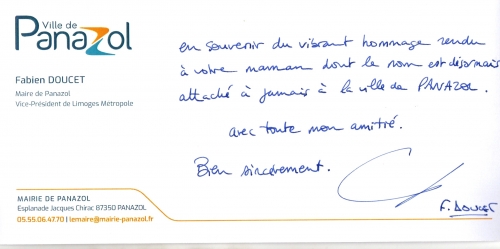 Ville de
Panazol
Fabien DOUCET
Maire de Panazol
Vice-Président de Limoges Métropole
en souvenir du vibrant hommage rendu
à votre maman dont le nom est désormais
attaché à jamais à la ville de PANAZOL.
avec toute mon amitié.
Bien sincèrement.
F. DOUCET
MAIRIE DE PANAZOL
Esplanade Jacques Chirac 87350 PANAZOL
05.55.06.47.70 | lemaire@mairie-panazol.fr